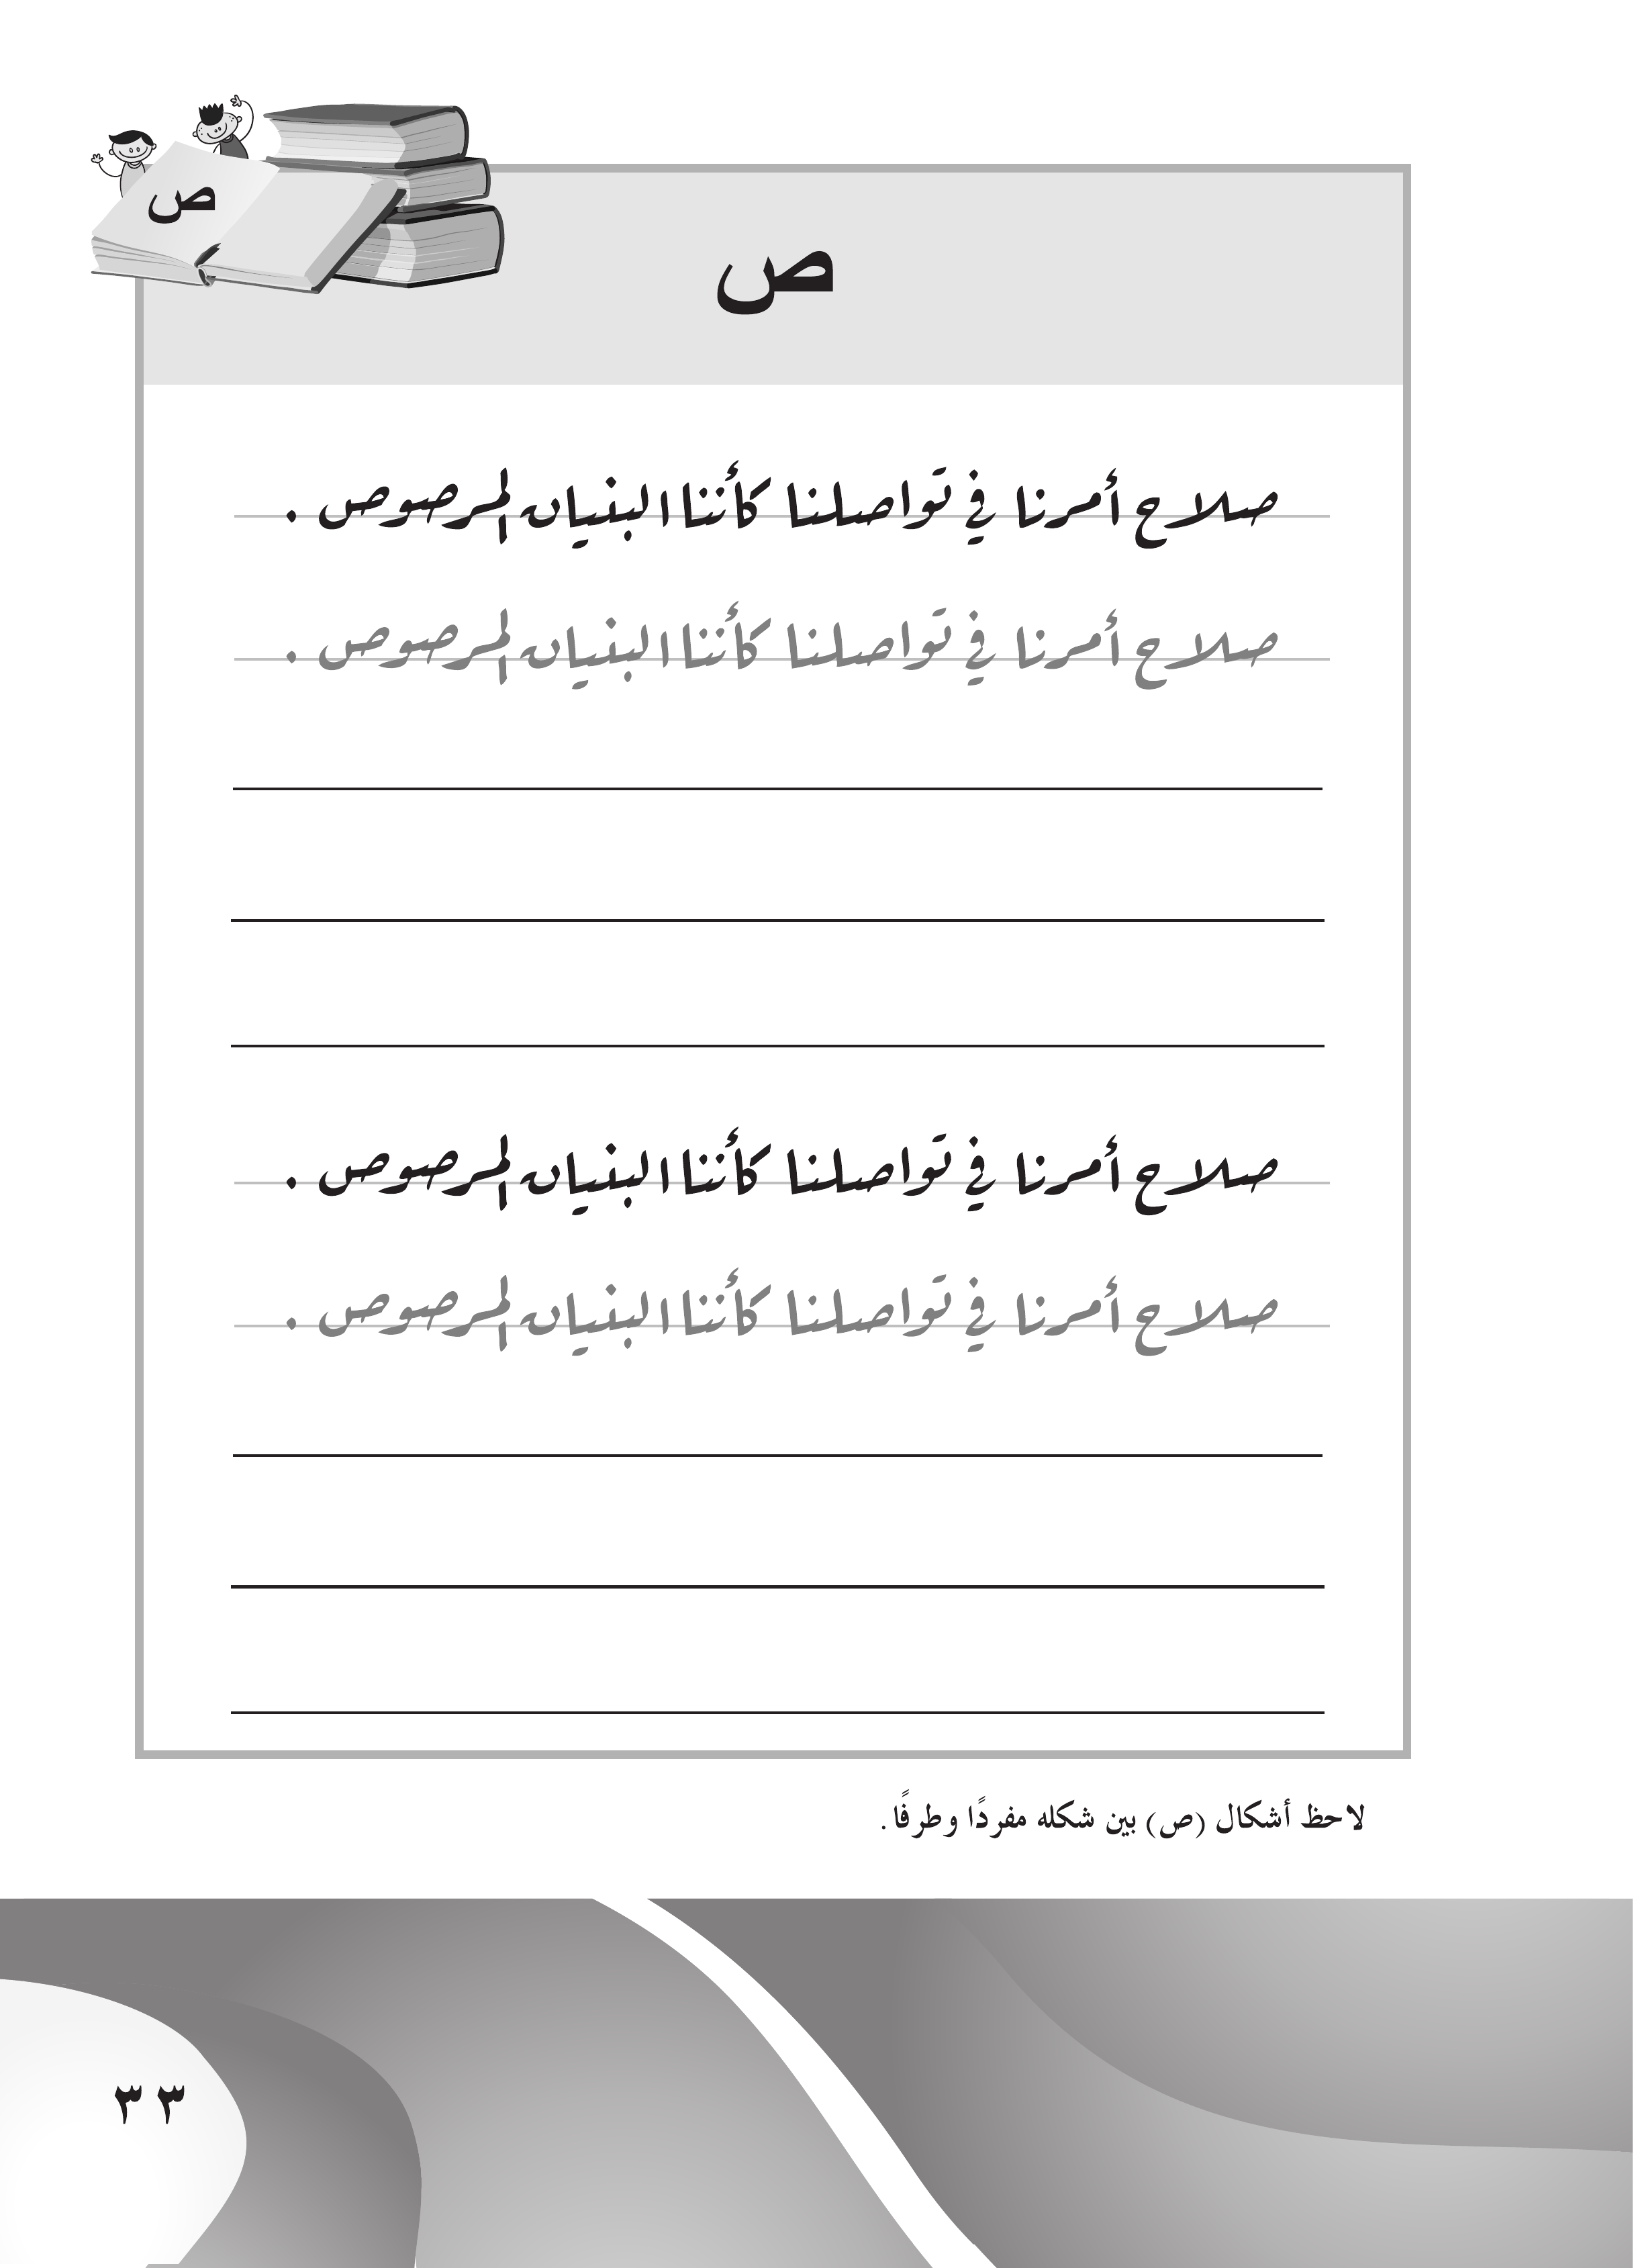 ص
ص
صلاح أمرنا في تواصلنا كأننا البنيان المرصوص .
صلاح أمرنا في تواصلنا كأننا البنيان المرصوص .
صلاح أمرنا في تواصلنا كأننا البنيان المرصوص .
صلاح أمرنا في تواصلنا كأننا البنيان المرصوص .
لاحظ أشكال (ص) بين شكله مفردًا وطرفًا.
٣٣